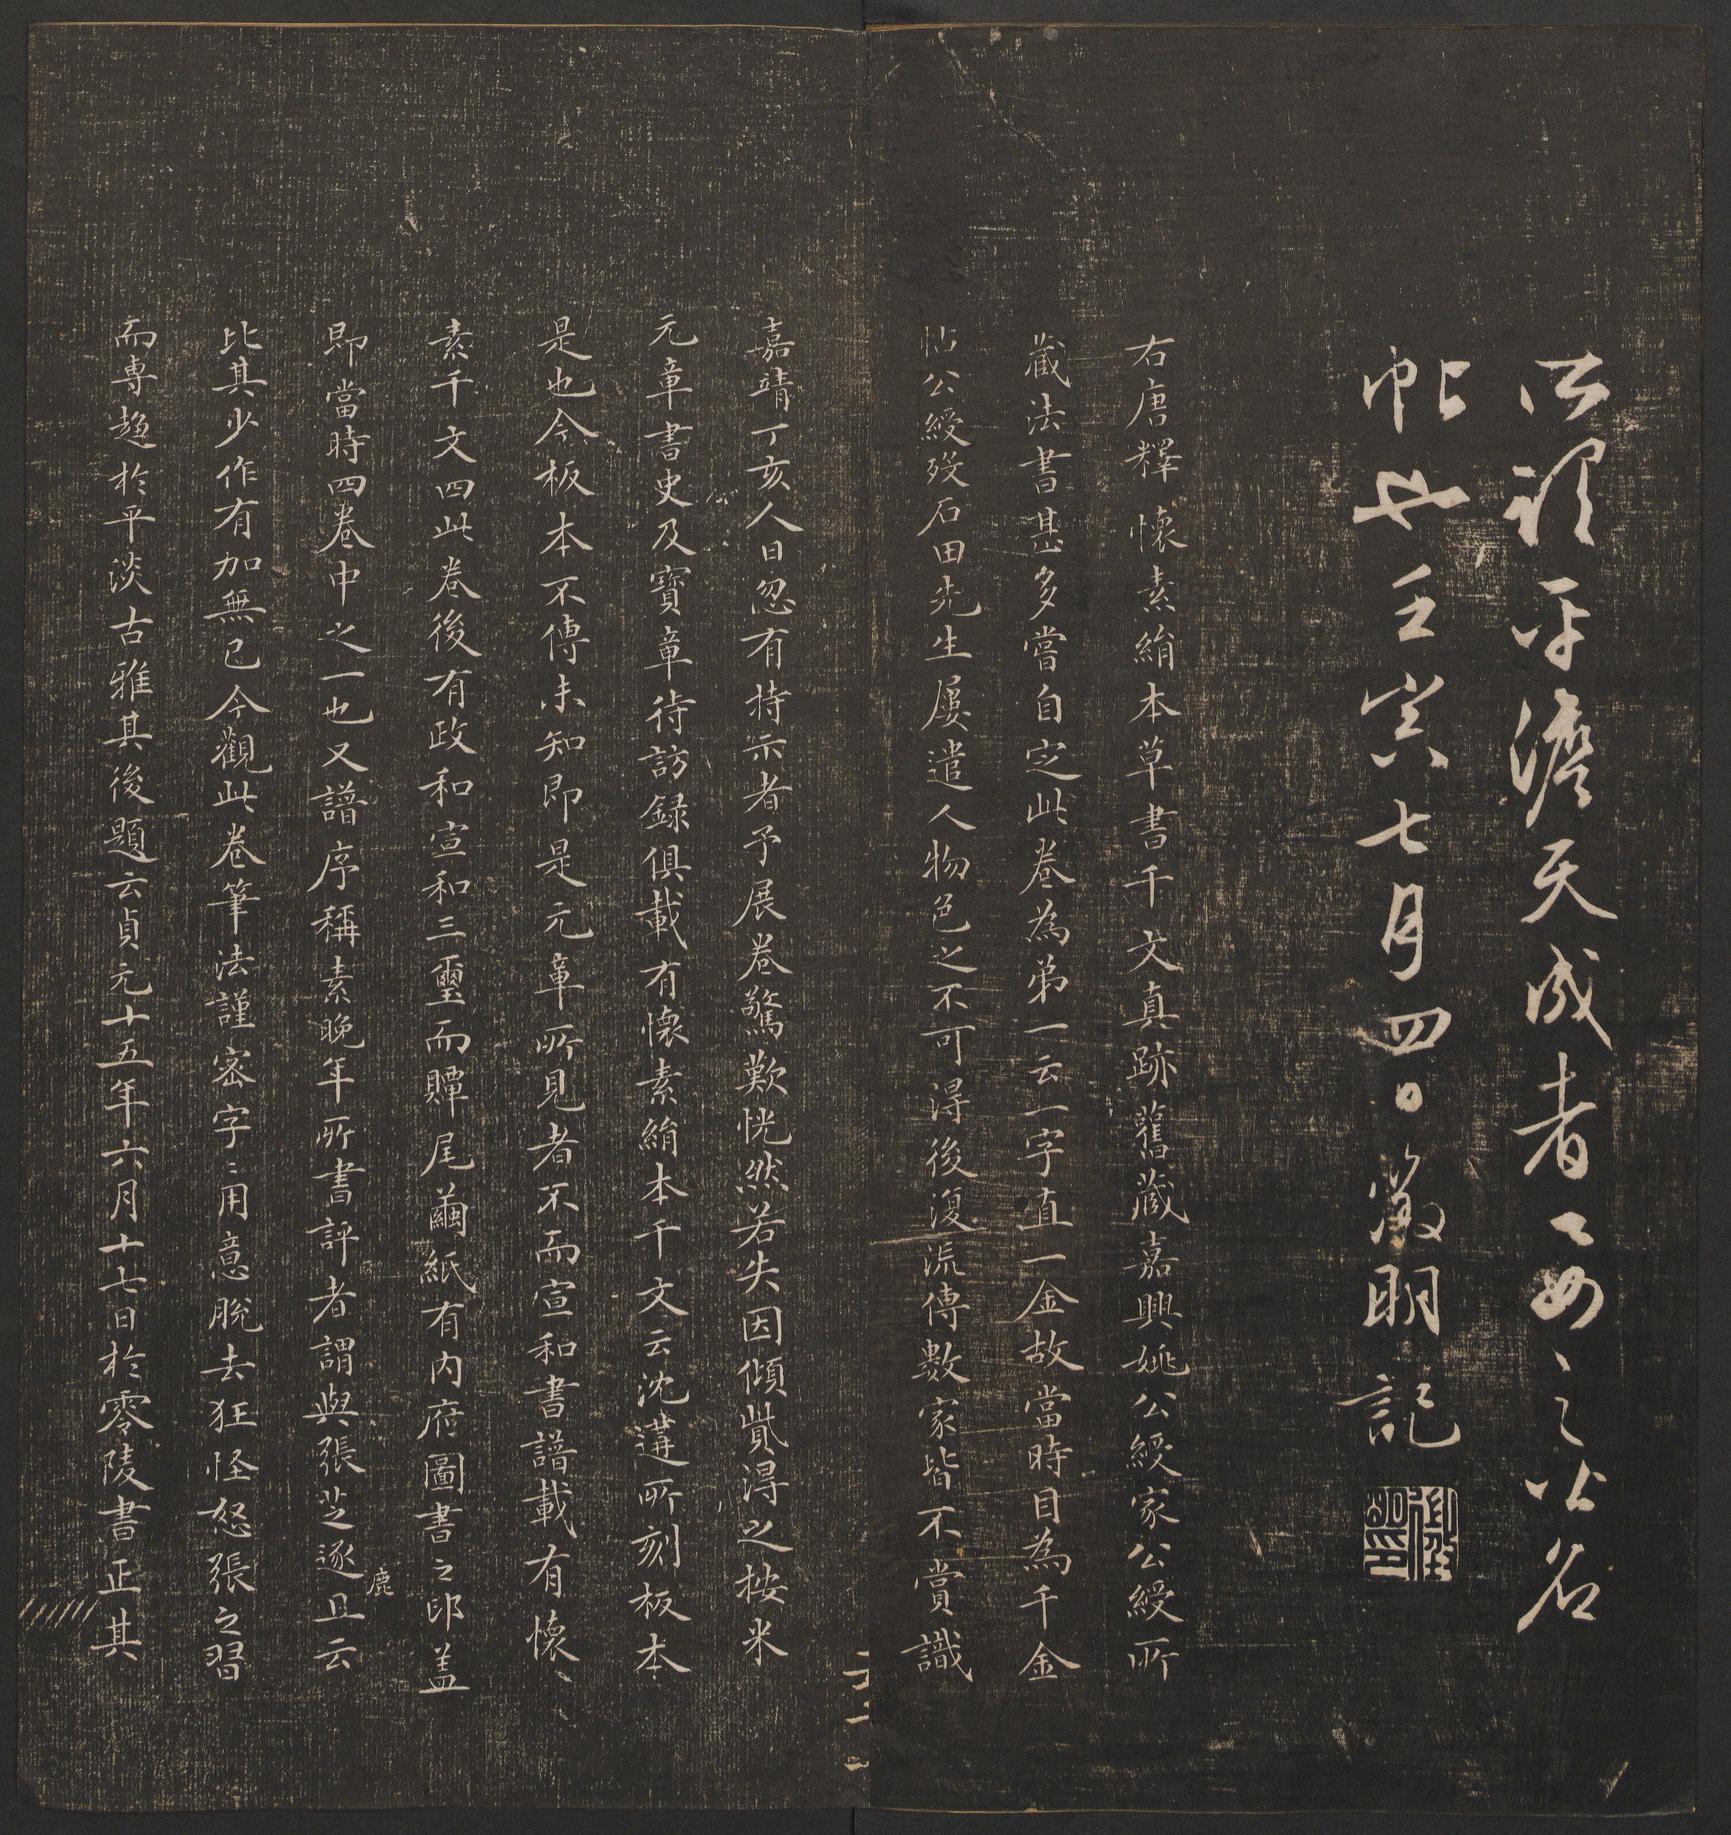 所謂平淡天成者乙安之以名
帖也壬寅七月四日徵明記
右唐釋懷素絹本草書千文真跡舊藏嘉興姚公綬家公綬所
藏法書甚多嘗自定此卷為弟一云一字直一金故當時目為千金
帖公綬歿石田先生屢遣人物色之不可得後復流傳數家皆不賞識
嘉靖丁亥人日忽有持示者予展卷驚歎恍然若失因傾貲得之按米
元章書史及寶章待訪錄俱載有懷素絹本千文云沈遘所刻板本
是也今板本不傳未知即是元章所見者不而宣和書譜載有懷
素千文四此卷後有政和宣和三璽而贉尾繭紙有內府圖書之印蓋
即當時四卷中之一也又譜序稱素晚年所書評者謂與張芝逐鹿且云
比其少作有加無已今觀此卷筆法謹密字〻用意脫去狂怪怒張之習
而專趨於平淡古雅其後題云貞元十五年六月十七日於零陵書正其